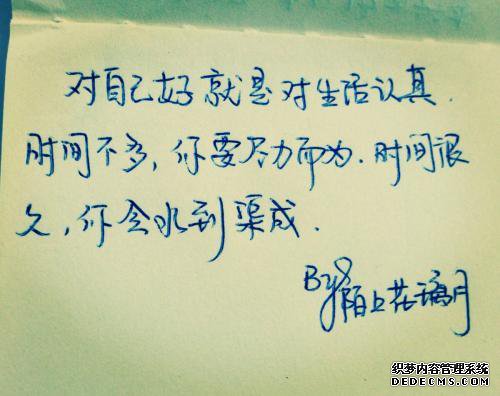 对自己好就是对生活认真.
时间不多,你要尽力而为.时间很
久,你会水到渠成.
By 陌上花璃月
织梦内容管理系统
DEDECMS.COM